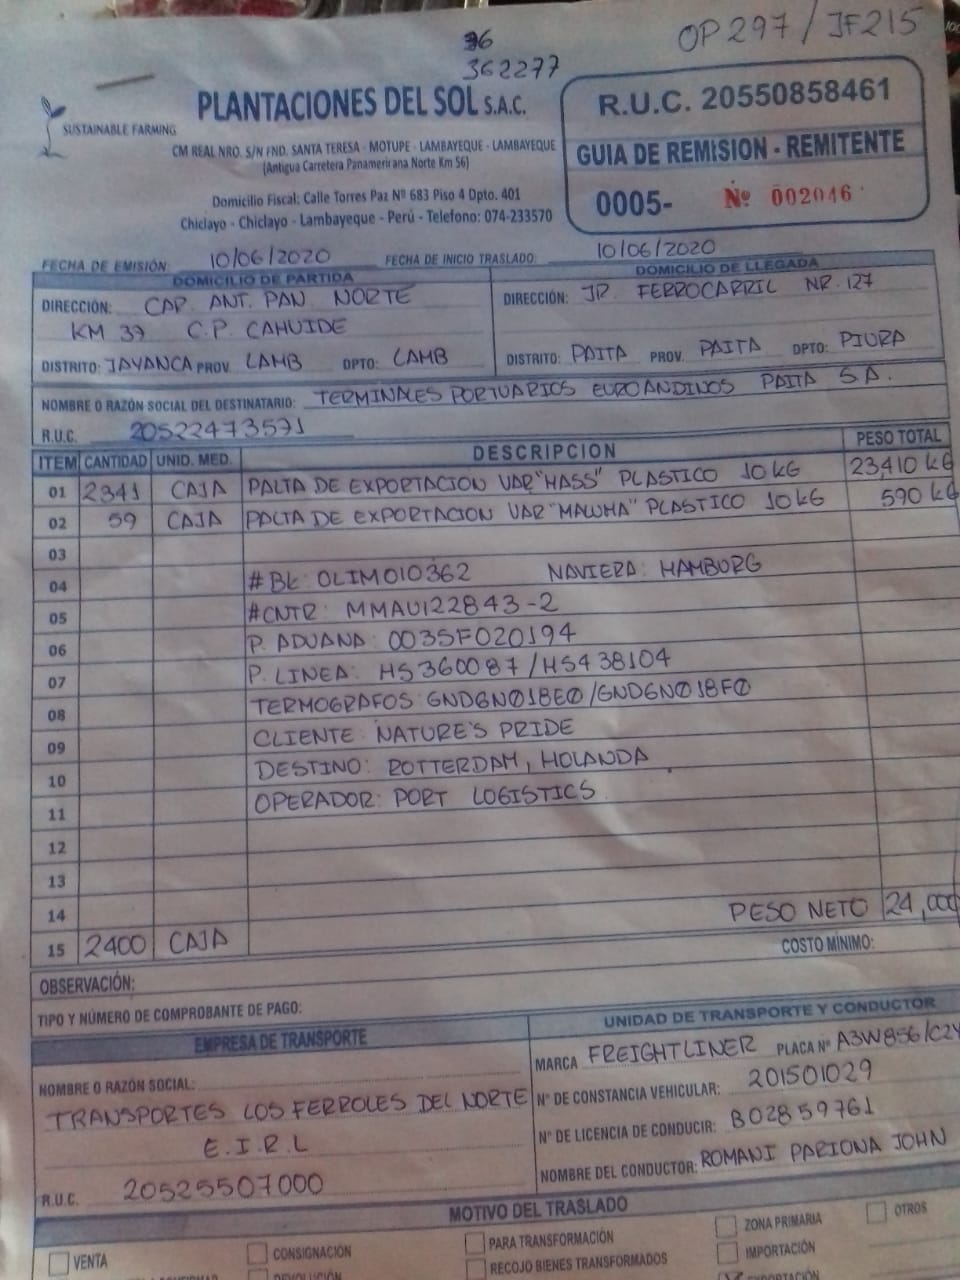 OP297/JF215
36
362277
SUSTAINABLE FARMING
PLANTACIONES DEL SOL S.A.C.
CM REAL NRO. S/N FND. SANTA TERESA - MOTUPE - LAMBAYEQUE - LAMBAYEQUE
(Antigua Carretera Panamericana Norte Km 56)
Domicilio Fiscal: Calle Torres Paz Nº 683 Piso 4 Dpto. 401
Chiclayo - Chiclayo - Lambayeque - Perú - Telefono: 074-233570
R.U.C. 20550858461
GUIA DE REMISION - REMITENTE
0005- Nº 002046
FECHA DE EMISIÓN: 10/06/2020 FECHA DE INICIO TRASLADO: 10/06/2020
DOMICILIO DE PARTIDA
DIRECCIÓN: CAR. ANT. PAN NORTE
KM 37 C.P. CAHUIDE
DISTRITO: JAYANCA PROV. LAMB DPTO: LAMB
DOMICILIO DE LLEGADA
DIRECCIÓN: JR. FERROCARRIL NR. 127
DISTRITO: PAITA PROV. PAITA DPTO: PIURA
NOMBRE O RAZÓN SOCIAL DEL DESTINATARIO: TERMINALES PORTUARIOS EUROANDINOS PAITA S.A.
R.U.C. 20522473571
ITEM CANTIDAD UNID. MED. DESCRIPCION PESO TOTAL
01 2341 CAJA PALTA DE EXPORTACION VAR "HASS" PLASTICO 10 KG 23,410 KG
02 59 CAJA PALTA DE EXPORTACION VAR "MALUMA" PLASTICO 10 KG 590 KG
03
04 #BL: OLIM010362 NAVIERA: HAMBORG
05 #CNTR: MMAU122843-2
06 P. ADUANA: 0035F020194
07 P. LINEA: HS360087/HS438104
08 TERMOGRAFOS: GND6N018E0/GND6N018F0
09 CLIENTE: NATURE'S PRIDE
10 DESTINO: ROTTERDAM, HOLANDA
11 OPERADOR: PORT LOGISTICS
12
13
14 PESO NETO 24,000
15 2400 CAJA
COSTO MÍNIMO:
OBSERVACIÓN:
TIPO Y NÚMERO DE COMPROBANTE DE PAGO:
EMPRESA DE TRANSPORTE
NOMBRE O RAZÓN SOCIAL:
TRANSPORTES LOS FERROLES DEL NORTE
E.I.R.L
R.U.C. 20525507000
UNIDAD DE TRANSPORTE Y CONDUCTOR
MARCA FREIGHTLINER PLACA Nº A3W856/C2Y
Nº DE CONSTANCIA VEHICULAR: 201501029
Nº DE LICENCIA DE CONDUCIR: B02859761
NOMBRE DEL CONDUCTOR: ROMANI PARIONA JOHN
MOTIVO DEL TRASLADO
VENTA CONSIGNACIÓN PARA TRANSFORMACIÓN ZONA PRIMARIA OTROS
RECOJO BIENES TRANSFORMADOS IMPORTACIÓN